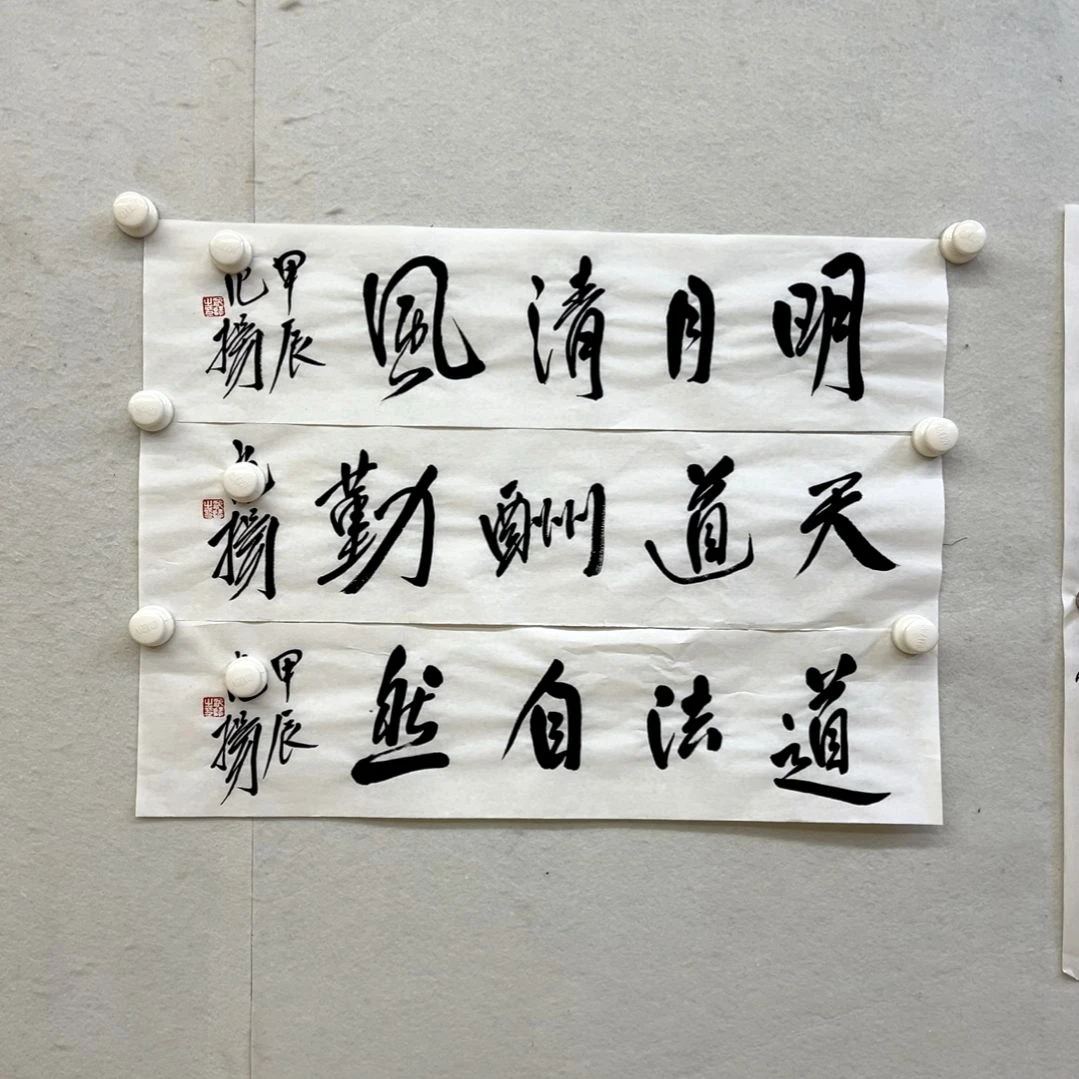 明月清風
甲辰
揚
天道酬勤
揚
道法自然
甲辰
揚